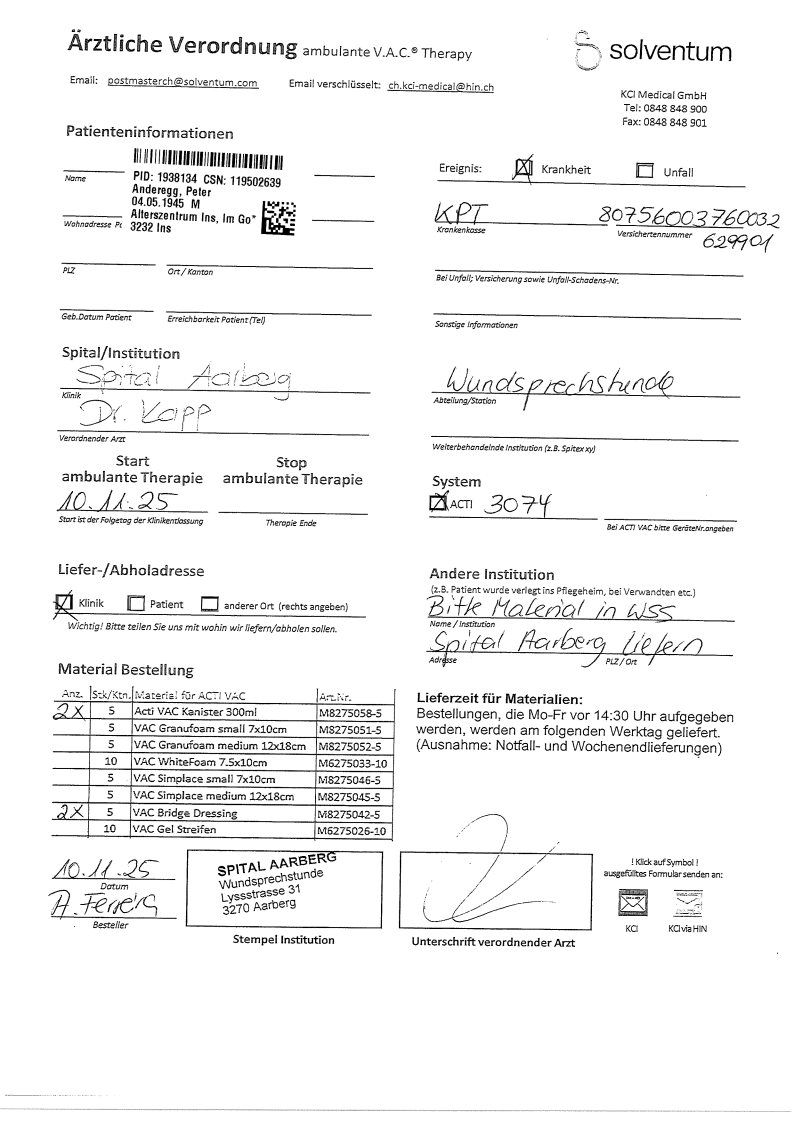 Ärztliche Verordnung ambulante V.A.C.® Therapy
solventum
Email: postmasterch@solventum.com Email verschlüsselt: ch.kci-medical@hin.ch
KCI Medical GmbH
Tel: 0848 848 900
Fax: 0848 848 901
Patienteninformationen
PID: 1938134 CSN: 119502639
Anderegg, Peter
04.05.1945 M
Alterszentrum Ins, Im Go*
3232 Ins
Name
Wohnadresse
PLZ Ort / Kanton
Geb.Datum Patient Erreichbarkeit Patient (Tel)
Ereignis: Krankheit Unfall
KPT 80756003760032
Krankenkasse Versichertennummer
629901
Bei Unfall; Versicherung sowie Unfall-Schadens-Nr.
Sonstige Informationen
Spital/Institution
Spital Aarberg
Klinik
Dr. Kapp
Verordnender Arzt
Wundsprechstunde
Abteilung/Station
Weiterbehandelnde Institution (z.B. Spitex xy)
Start Stop
ambulante Therapie ambulante Therapie
10.11.25
Start ist der Folgetag der Klinikentlassung Therapie Ende
System
ACTI 3074
Bei ACTI VAC bitte GeräteNr.angeben
Liefer-/Abholadresse
Klinik Patient anderer Ort (rechts angeben)
Wichtig! Bitte teilen Sie uns mit wohin wir liefern/abholen sollen.
Andere Institution
(z.B. Patient wurde verlegt ins Pflegeheim, bei Verwandten etc.)
Bitte Material in WSS
Name / Institution
Spital Aarberg liefern
Adresse PLZ / Ort
Material Bestellung
Anz. Stk/Ktn. Material für ACTI VAC Art.Nr.
2x 5 Acti VAC Kanister 300ml M8275058-5
5 VAC Granufoam small 7x10cm M8275051-5
5 VAC Granufoam medium 12x18cm M8275052-5
10 VAC WhiteFoam 7.5x10cm M6275033-10
5 VAC Simplace small 7x10cm M8275046-5
5 VAC Simplace medium 12x18cm M8275045-5
2x 5 VAC Bridge Dressing M8275042-5
10 VAC Gel Streifen M6275026-10
Lieferzeit für Materialien:
Bestellungen, die Mo-Fr vor 14:30 Uhr aufgegeben
werden, werden am folgenden Werktag geliefert.
(Ausnahme: Notfall- und Wochenendlieferungen)
10.11.25
Datum
A. Ferreira
Besteller
SPITAL AARBERG
Wundsprechstunde
Lyssstrasse 31
3270 Aarberg
Stempel Institution
Unterschrift verordnender Arzt
! Klick auf Symbol !
ausgefülltes Formular senden an:
KCI KCI via HIN